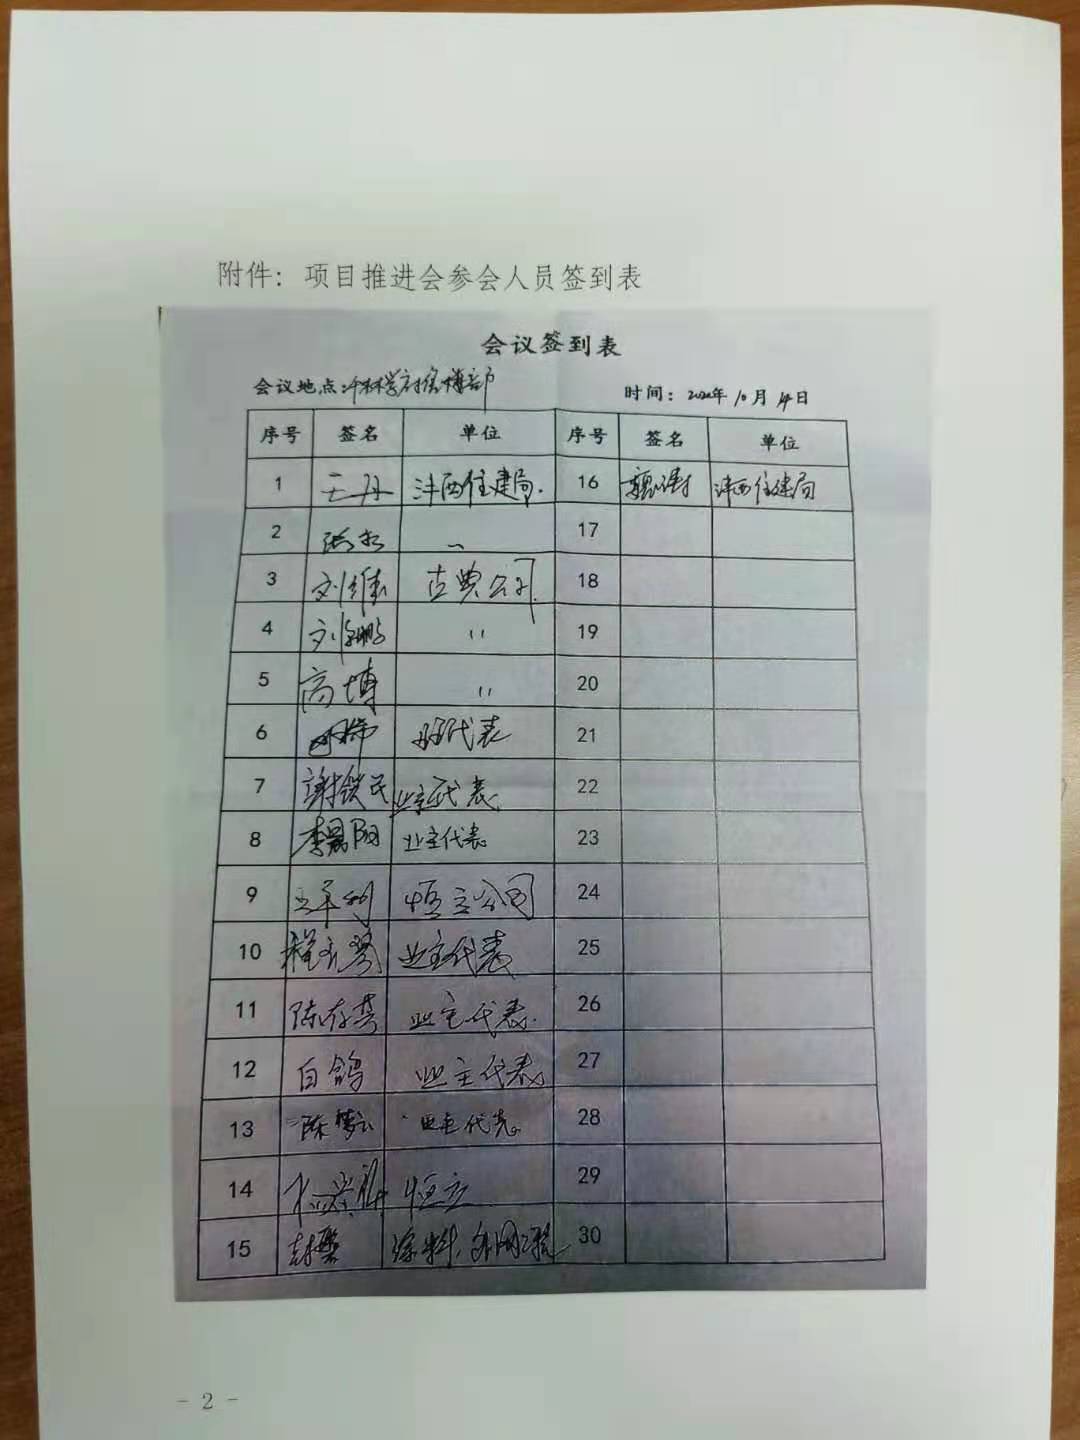 附件：项目推进会参会人员签到表
会议签到表
会议地点： 时间：2020年10月14日
序号 签名 单位 序号 签名 单位
1 王丹 沣西住建局. 16 沣西住建局
2 17
3 刘 古典公司 18
4 刘 〃 19
5 高博 〃 20
6 代表 21
7 谢铁民 业主代表 22
8 李晨阳 业主代表 23
9 恒立公司 24
10 程 业主代表 25
11 陈 业主代表. 26
12 白鸽 业主代表 27
13 陈 业主代表 28
14 恒立 29
15 30
- 2 -